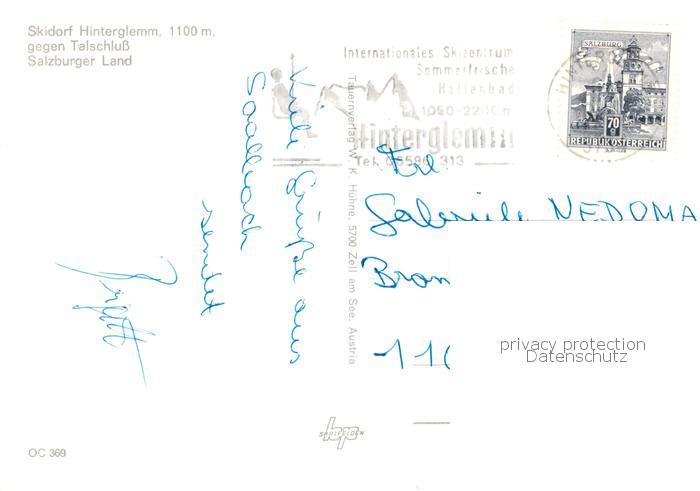 Skidorf Hinterglemm, 1100 m,
gegen Talschluß
Salzburger Land
Internationales Skizentrum
Sommerfrische
Hallenbad
1050-2200 m
Hinterglemm
Tel. 313
SALZBURG
70
g
REPUBLIK ÖSTERREICH
Tauernverlag W. K. Hühne, 5700 Zell am See, Austria
Viele Grüße aus
Saalbach
sendet
Birgitt
Frl.
Gabriele NEDOMA
110
privacy protection
Datenschutz
SAALFELDEN
OC 369